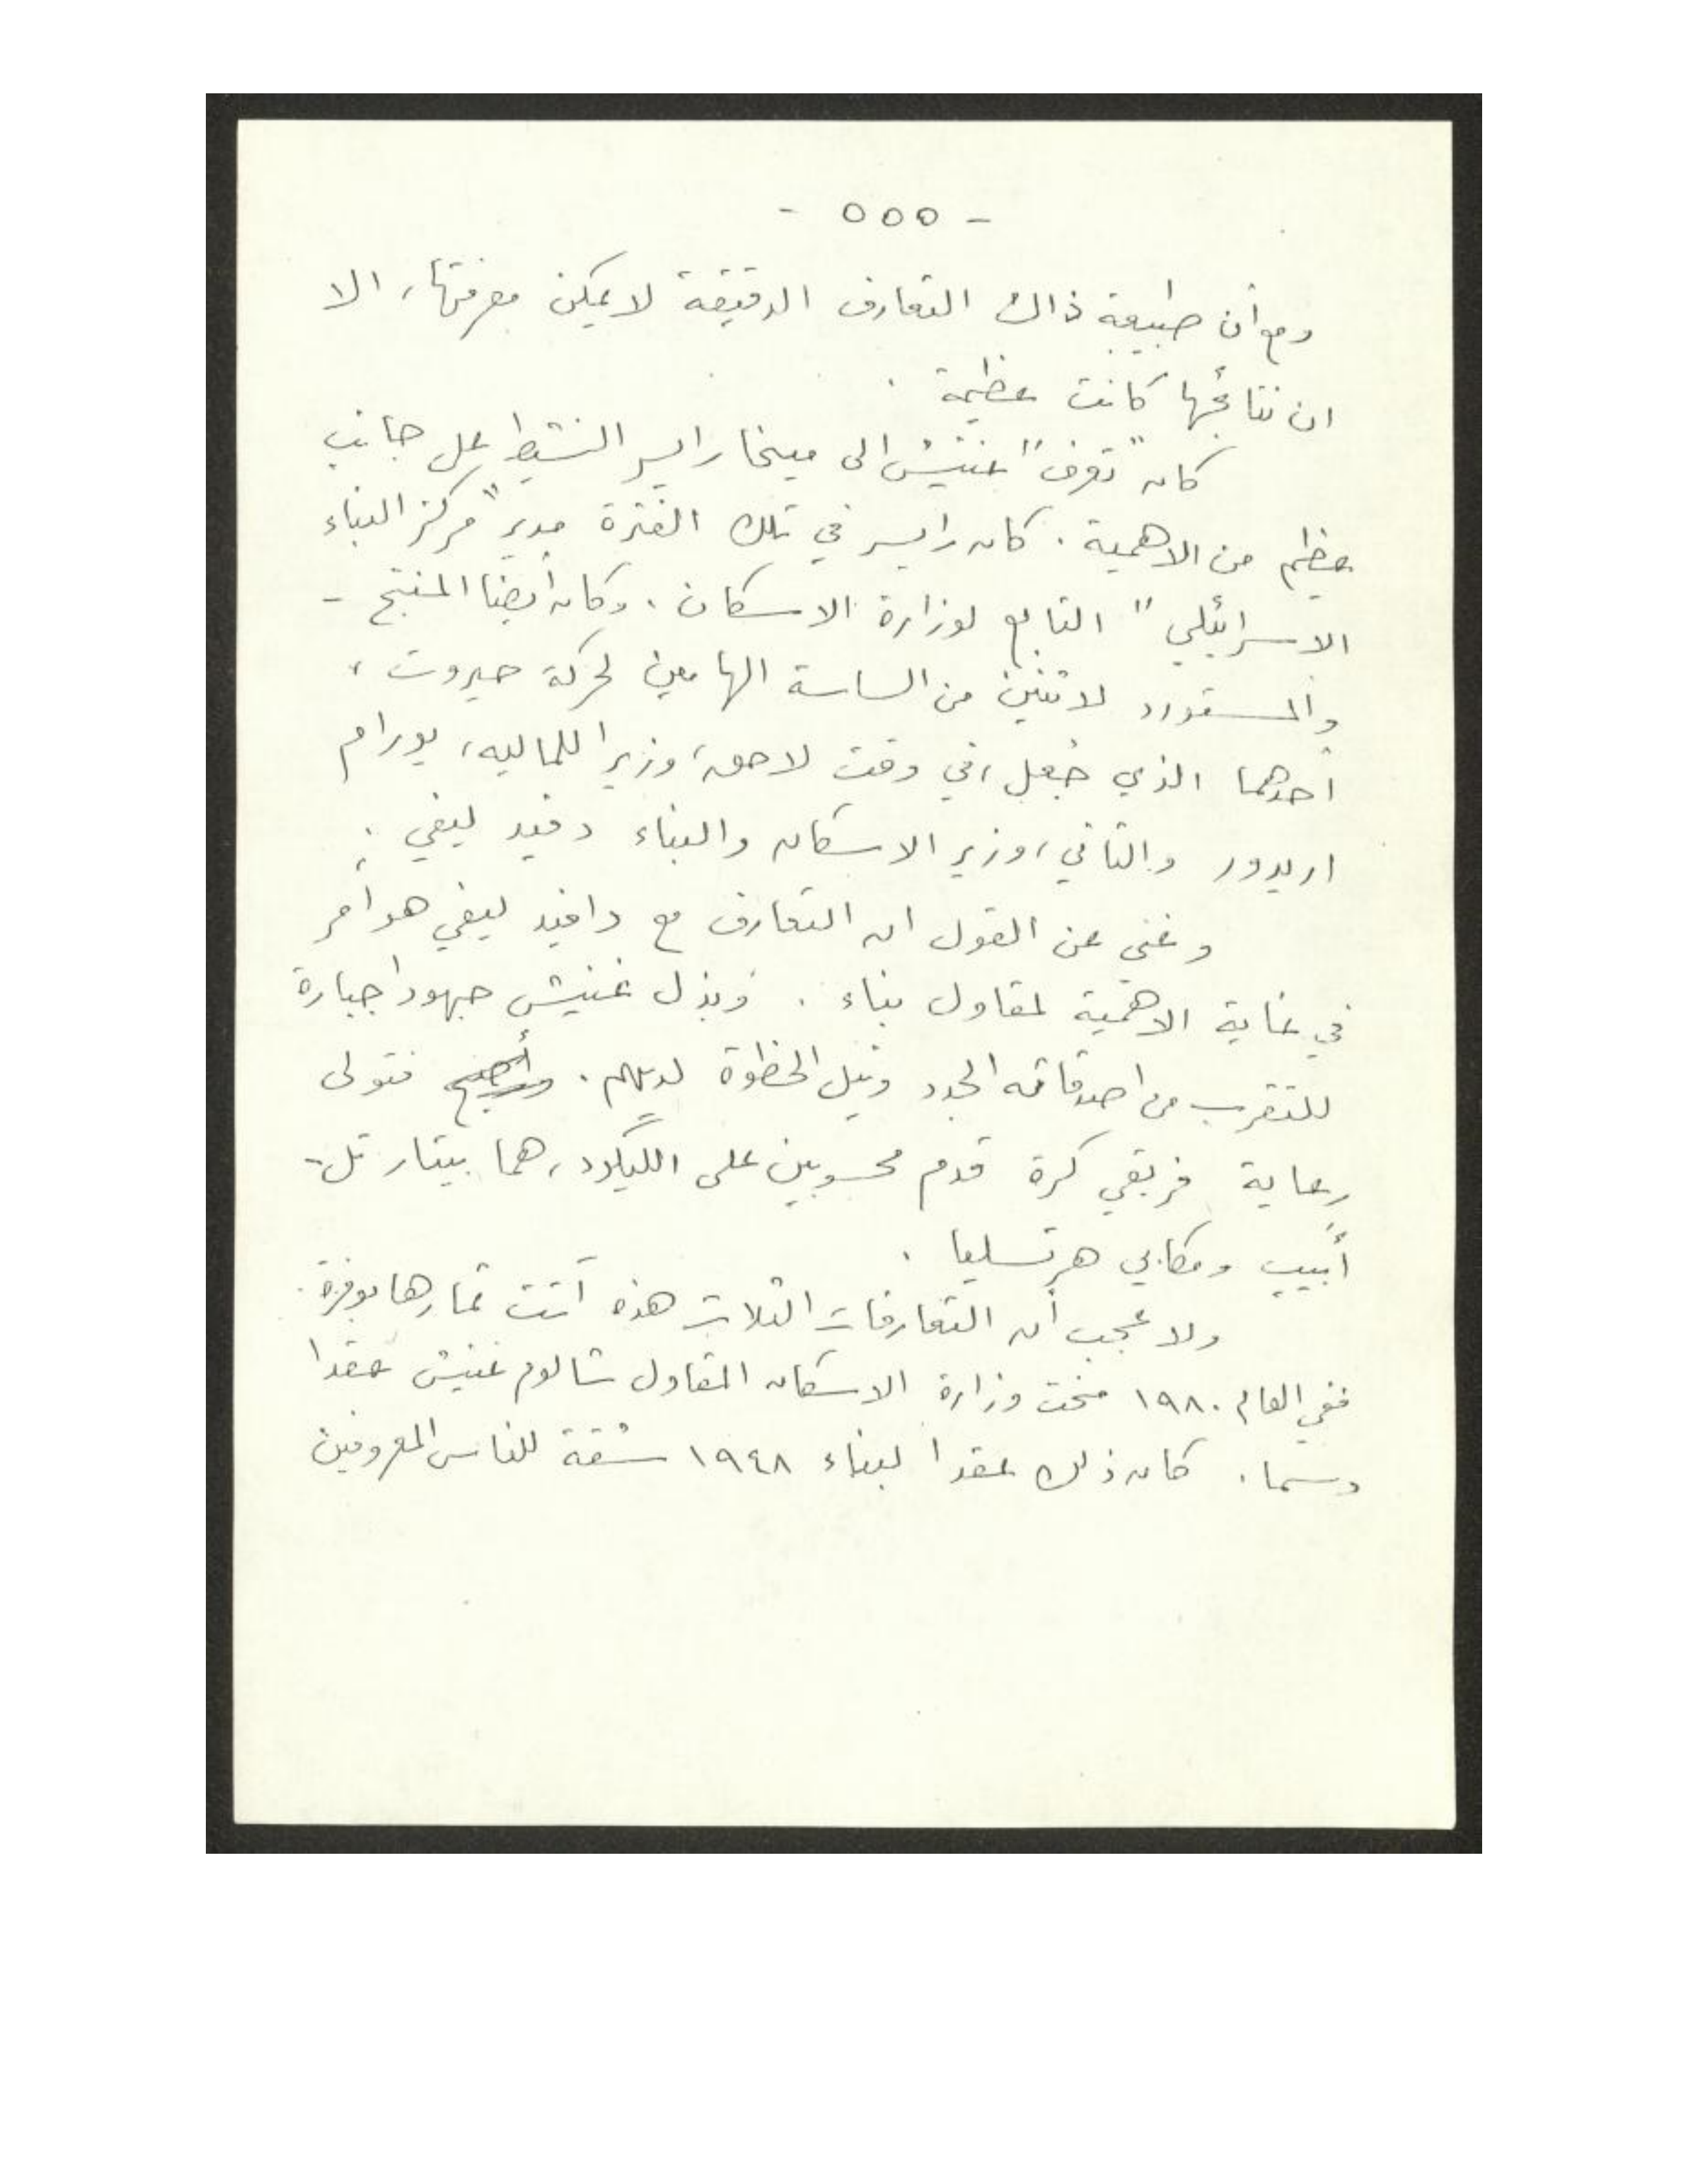 - ٥٥٥ -
ومع أن طبيعة ذاك التعارف الدقيقة لا يمكن معرفتها، الا
ان نتائجها كانت عظيمة .
كان "تعرف" غنيش الى ميخا رايسر النشيط على جانب
عظيم من الاهمية . كان رايسر في تلك الفترة مدير "مركز البناء
الاسرائيلي" التابع لوزارة الاسكان . وكان أيضا المنتج -
والمستورد لاثنين من الساسة الهامين لحركة حيروت ،
أحدهما الذي جُعل ، في وقت لاحق، وزيرا للماليه، يورام
اريدور والثاني، وزير الاسكان والبناء دفيد ليفي .
وغني عن القول ان التعارف مع دافيد ليفي هو أمر
في غاية الاهمية لمقاول بناء . وبذل غنيش جهودا جبارة
للتقرب من اصدقائه الجدد ونيل الحظوة لديهم . وأصبح فتولى
رعاية فريقي كرة قدم محسوبين على الليكود، هما بيتار تل-
أبيب ومكابي هرتسليا .
ولا عجب أن التعارفات الثلاث هذه آتت ثمارها بوفرة .
ففي العام ١٩٨٠ منحت وزارة الاسكان المقاول شالوم غنيش عقدا
دسما . كان ذلك عقدا لبناء ١٩٤٨ شقة للناس المعروفين